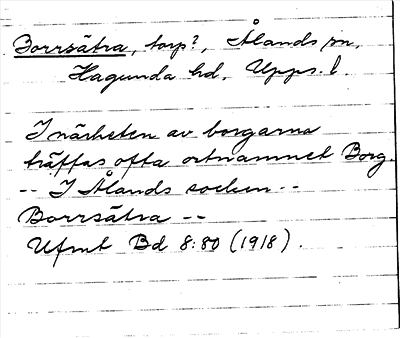 Borrsätra, torp?, Ålands sn,
Hagunda hd, Upps. l.
I närheten av borgarna
träffas ofta ortnamnet Borg.
-- I Ålands socken --
Borrsätra --
Ufmt Bd 8:80 (1918).